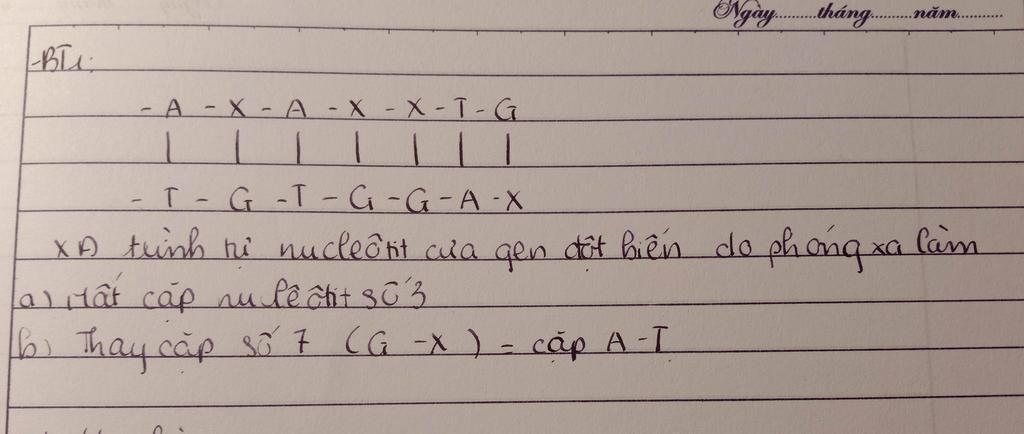 Ngày.........tháng.........năm..........
-BT1:
- A - X - A - X - X - T - G
| | | | | | |
- T - G - T - G - G - A - X
XĐ trình tự nuclêôtit của gen đột biến do phóng xạ làm
a) Mất cặp nuclêôtit số 3
b) Thay cặp số 7 (G - X) = cặp A - T